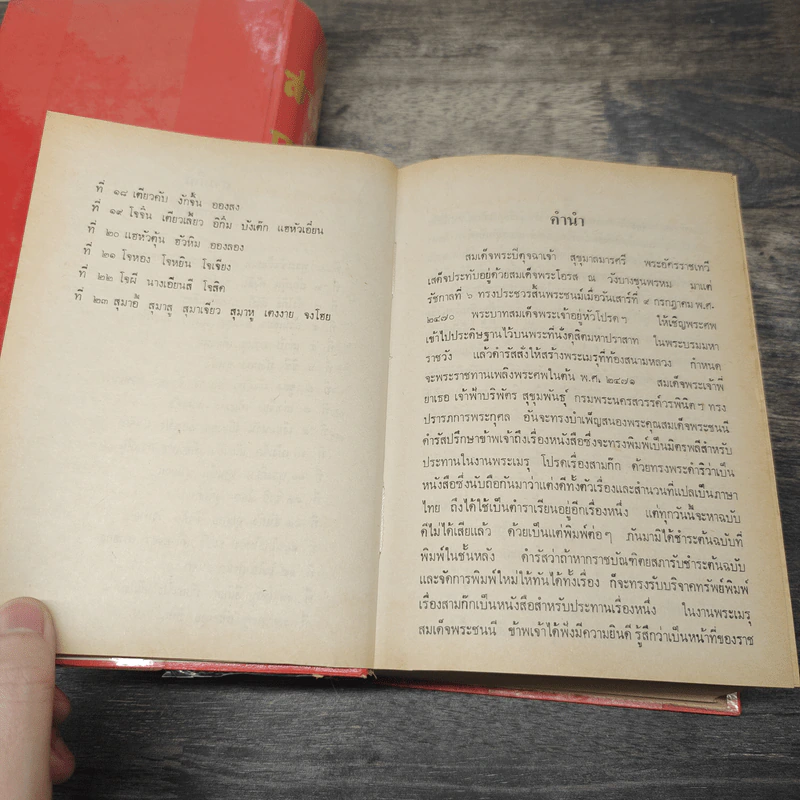 ที่ ๑๘ เตียวคับ งักจิ้น อองลง
ที่ ๑๙ โจจิ๋น เตียวเลี้ยว อิกิ๋ม บังเต๊ก แฮหัวเอี๋ยน
ที่ ๒๐ แฮหัวตุ้น ฮัวหิม อองลอง
ที่ ๒๑ โจหอง โจหยิน โจเจียง
ที่ ๒๒ โจผี นางเอียนสี โจสิด
ที่ ๒๓ สุมาอี้ สุมาสู สุมาเจียว สุมาหู เตงงาย จงโฮย
คำนำ
สมเด็จพระปิตุจฉาเจ้า สุขุมาลมารศรี พระอัครราชเทวี
เสด็จประทับอยู่ด้วยสมเด็จพระโอรส ณ วังบางขุนพรหม มาแต่
รัชกาลที่ ๖ ทรงประชวรสิ้นพระชนม์เมื่อวันเสาร์ที่ ๙ กรกฎาคม พ.ศ.
๒๔๗๐ พระบาทสมเด็จพระเจ้าอยู่หัวโปรดฯ ให้เชิญพระศพ
เข้าไปประดิษฐานไว้บนพระที่นั่งดุสิตมหาปราสาท ในพระบรมมหา
ราชวัง แล้วดำรัสสั่งให้สร้างพระเมรุที่ท้องสนามหลวง กำหนด
จะพระราชทานเพลิงพระศพในต้น พ.ศ. ๒๔๗๑ สมเด็จพระเจ้าพี่
ยาเธอ เจ้าฟ้าบริพัตร สุขุมพันธุ์ กรมพระนครสวรรค์วรพินิตฯ ทรง
ปรารภการพระกุศล อันจะทรงบำเพ็ญสนองพระคุณสมเด็จพระชนนี
ดำรัสปรึกษาข้าพเจ้าถึงเรื่องหนังสือซึ่งจะทรงพิมพ์เป็นมิตรพลีสำหรับ
ประทานในงานพระเมรุ โปรดเรื่องสามก๊ก ด้วยทรงพระดำริว่าเป็น
หนังสือซึ่งนับถือกันมาว่าแต่งดีทั้งตัวเรื่องและสำนวนที่แปลเป็นภาษา
ไทย ถึงได้ใช้เป็นตำราเรียนอยู่อีกเรื่องหนึ่ง แต่ทุกวันนี้จะหาฉบับ
ดีไม่ได้เสียแล้ว ด้วยเป็นแต่พิมพ์ต่อๆ กันมามิได้ชำระต้นฉบับที่
พิมพ์ในชั้นหลัง ดำรัสว่าถ้าหากราชบัณฑิตยสภารับชำระต้นฉบับ
และจัดการพิมพ์ใหม่ให้ทันได้ทั้งเรื่อง ก็จะทรงรับบริจาคทรัพย์พิมพ์
เรื่องสามก๊กเป็นหนังสือสำหรับประทานเรื่องหนึ่ง ในงานพระเมรุ
สมเด็จพระชนนี ข้าพเจ้าได้ฟังมีความยินดี รู้สึกว่าเป็นหน้าที่ของราช